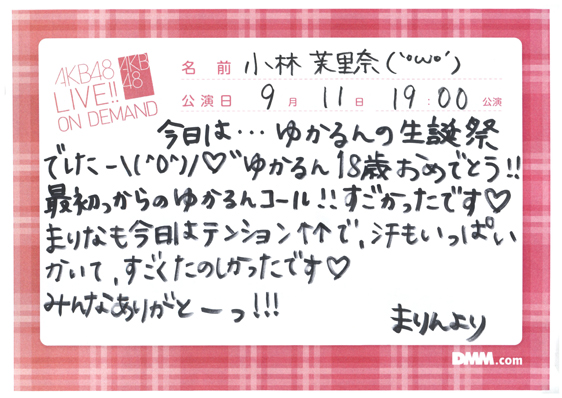 AKB48
LIVE!!
ON DEMAND
AKB
48
名前 小林茉里奈(`・ω・´)
公演日 9月11日 19:00 公演
今日は…ゆかるんの生誕祭
でしたー\(^O^)/♡゛ゆかるん18歳おめでとう!!
最初っからのゆかるんコール!!すごかったです♡
まりなも今日はテンション↑↑で、汗もいっぱい
かいて、すごくたのしかったです♡
みんなありがとーっ!!!
まりんより
DMM.com